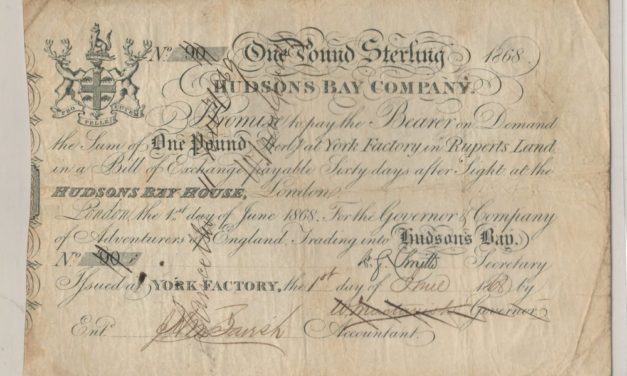 PRO PELLE CUTEM
No. 90 One Pound Sterling 1868.
HUDSONS BAY COMPANY.
I Promise to pay the Bearer on Demand
the Sum of One Pound Sterling at York Factory in Ruperts Land
in a Bill of Exchange payable Sixty days after Sight at the
HUDSONS BAY HOUSE, London
London, the 1st day of June 1868. For the Governor & Company
of Adventurers of England, Trading into Hudsons Bay.
No. 90 Smith Secretary
Issued at YORK FACTORY, the 1st day of June 1868 by
Governor
Entd. Accountant.
Cancelled